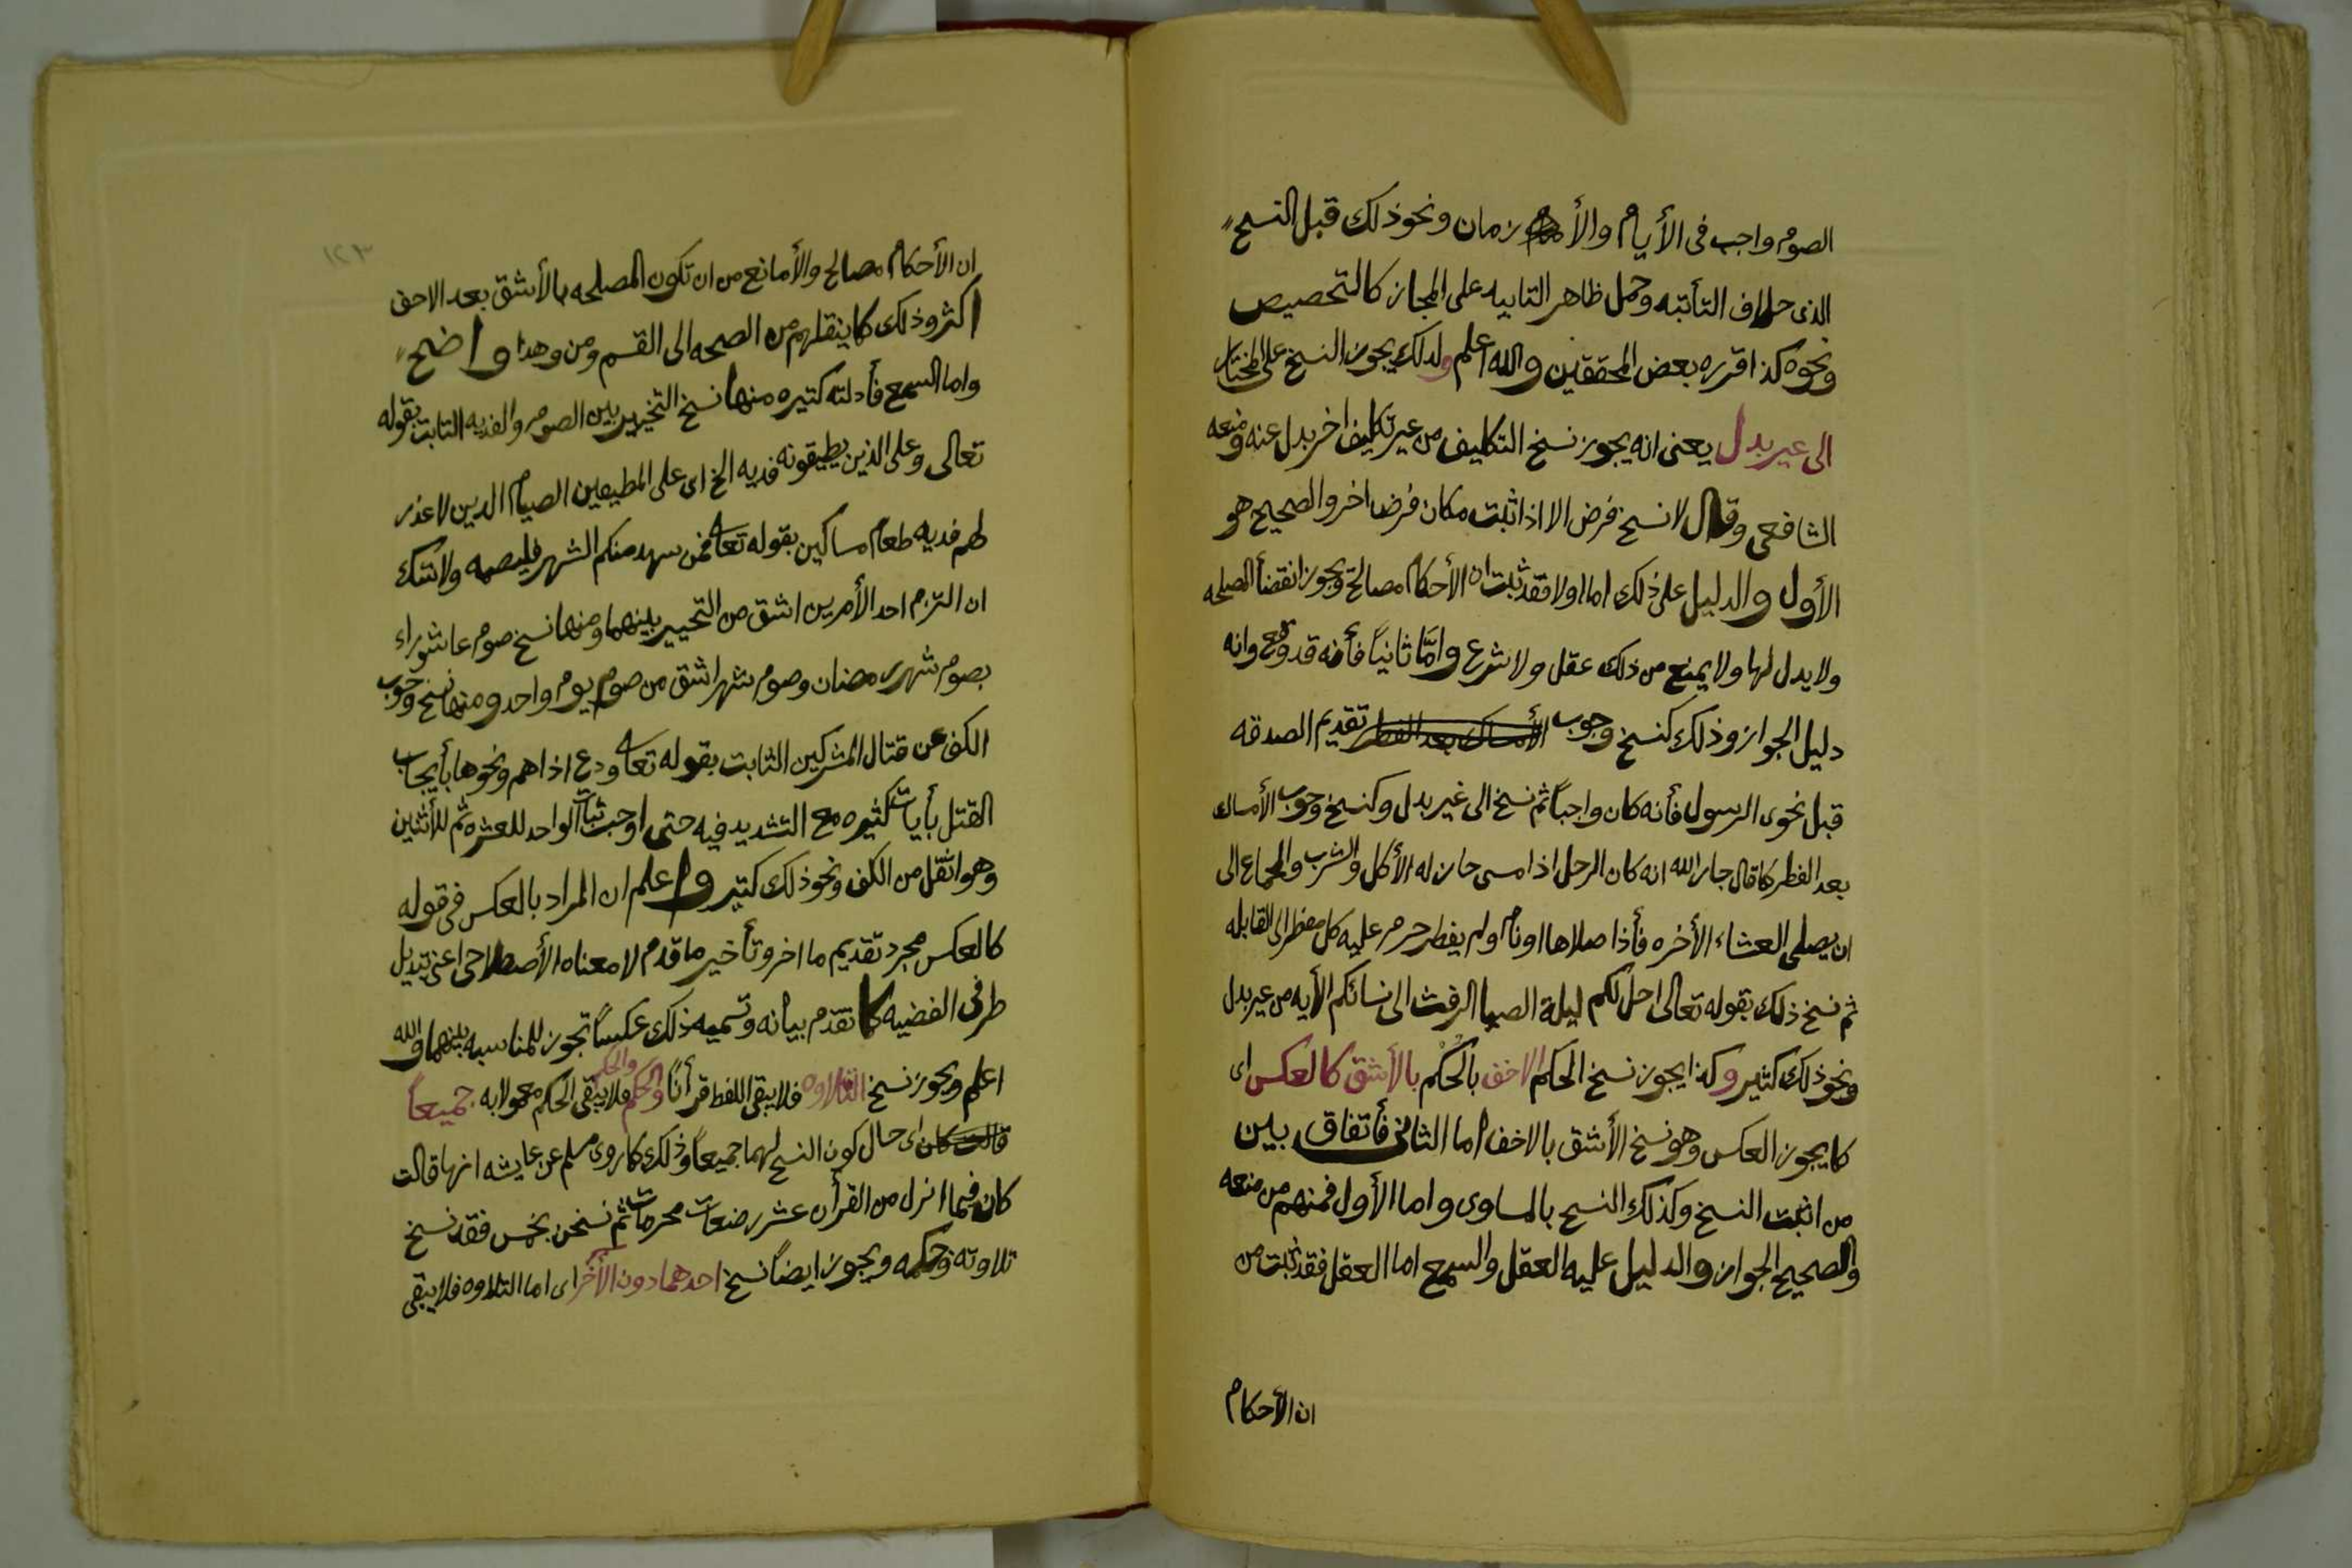 الصوم واجب فى الأيام والأ زمان ونحو ذلك قبل النسخ
الذى خلاف التأبيه وحمل ظاهر التابيه على المجاز كالتحصيص
ونحوه كذا قرره بعض المحققين والله اعلم ولدلك يجوز النسخ على المختار
الى عير بدل يعنى انه يجوز نسخ التكليف من عير تكليف اخر بدل عنه ومنعه
الشافعى وقال لا نسخ فرض الا اذا ثبت مكان فرضا اخر والصحيح هو
الأول والدليل على ذلك اما اولا فقد ثبت ان الأحكام مصالح ويجوز انقضأ المصلحه
ولا بدل لها ولا يمنع من ذلك عقل ولا شرع وامّا ثانياً فأنه قد وقع وانه
دليل الجواز وذلك كنسخ وجوب الأمساك بعد الفطر تقديم الصدقه
قبل نجوى الرسول فأنه كان واجباً ثم نسخ الى غير بدل وكنسخ وجوب الأمساك
بعد الفطر كما قال جار الله انه كان الرجل اذا امسى حازله الأكل والشرب والجماع الى
ان يصلى العشاء الأخره فأذا صلاها او نام ولم يفطر حرم عليه كل مفطر الى القابله
ثم نسخ ذلك بقوله تعالى احل لكم ليلة الصيا الرفث الى نسائكم الأيه من عير بدل
ونحو ذلك كثير وكذا يجوز نسخ الحكم الاخف بالحكم بالأشق كالعكس اى
كما يجوز العكس وهو نسخ الأشق بالاخف اما الثانى فأتفاق بين
من اثبت النسخ وكذلك النسح بالمساوى واما الأول فمنهم من منعه
والصحيح الجواز والدليل عليه العقل والسمع اما العقل فقد ثبت من
ان الأحكام
١٢٣
ان الأحكام مصالح والأمانع من ان تكون المصلحه بالأشق بعد الاحف
اكثر وذلك كما ينقلهم من الصحه الى القسم ومن وهدا واضح
واما السمع فأدلته كتيره منها نسخ التخيير بين الصوم والفديه التابت بقوله
تعالى وعلى الذين يطيقونه فديه الخ اى على المطيعين الصيام الدين لا عذر
لهم فديه طعام مساكين بقوله تعا فمن سهد منكم الشهر فليصمه ولا شك
ان التزم احد الأمرين اشق من التحيير بينهما ومنها نسخ صوم عاشوراء
بصوم شهر رمضان وصوم شهر اشق من صوم يوم واحد ومنها نسخ وجوب
الكف عن قتال المشركين الثابت بقوله تعا ودع اذاهم ونحوها بأيجاب
القتل بأيات كثيره مع التشديد فيه حتى اوجب ثبات الواحد للعشره ثم للأثنين
وهو اثقل من الكف ونحو ذلك كتير واعلم ان المراد بالعكس فى قوله
كالعكس مجرد تقديم ما اخر وتأخير ما قدم لا معناه الأصطلاحى اعنى تبديل
طرفى القضيه كما تقدم بيانه وتسميه ذلك عكساً تجوز للمناسبه بينهما والله
اعلم ويجوز نسخ التلاوه فلا يبقى اللفط قرأناً والحكم والحكم فلا يبقى الحكم معمولا به جميعاً
قالت كان اى حال كون النسخ لهما جميعاً وذلك كما روى مسلم عن عايشه انها قالت
كان فيما انزل من القرأن عشر رضعات محرمات ثم نسخن بخمس فقد نسخ
تلاوته وحكمه ويجوز ايضاً نسخ احدهما دون الأخر اى اما التلاوه فلا يبقى